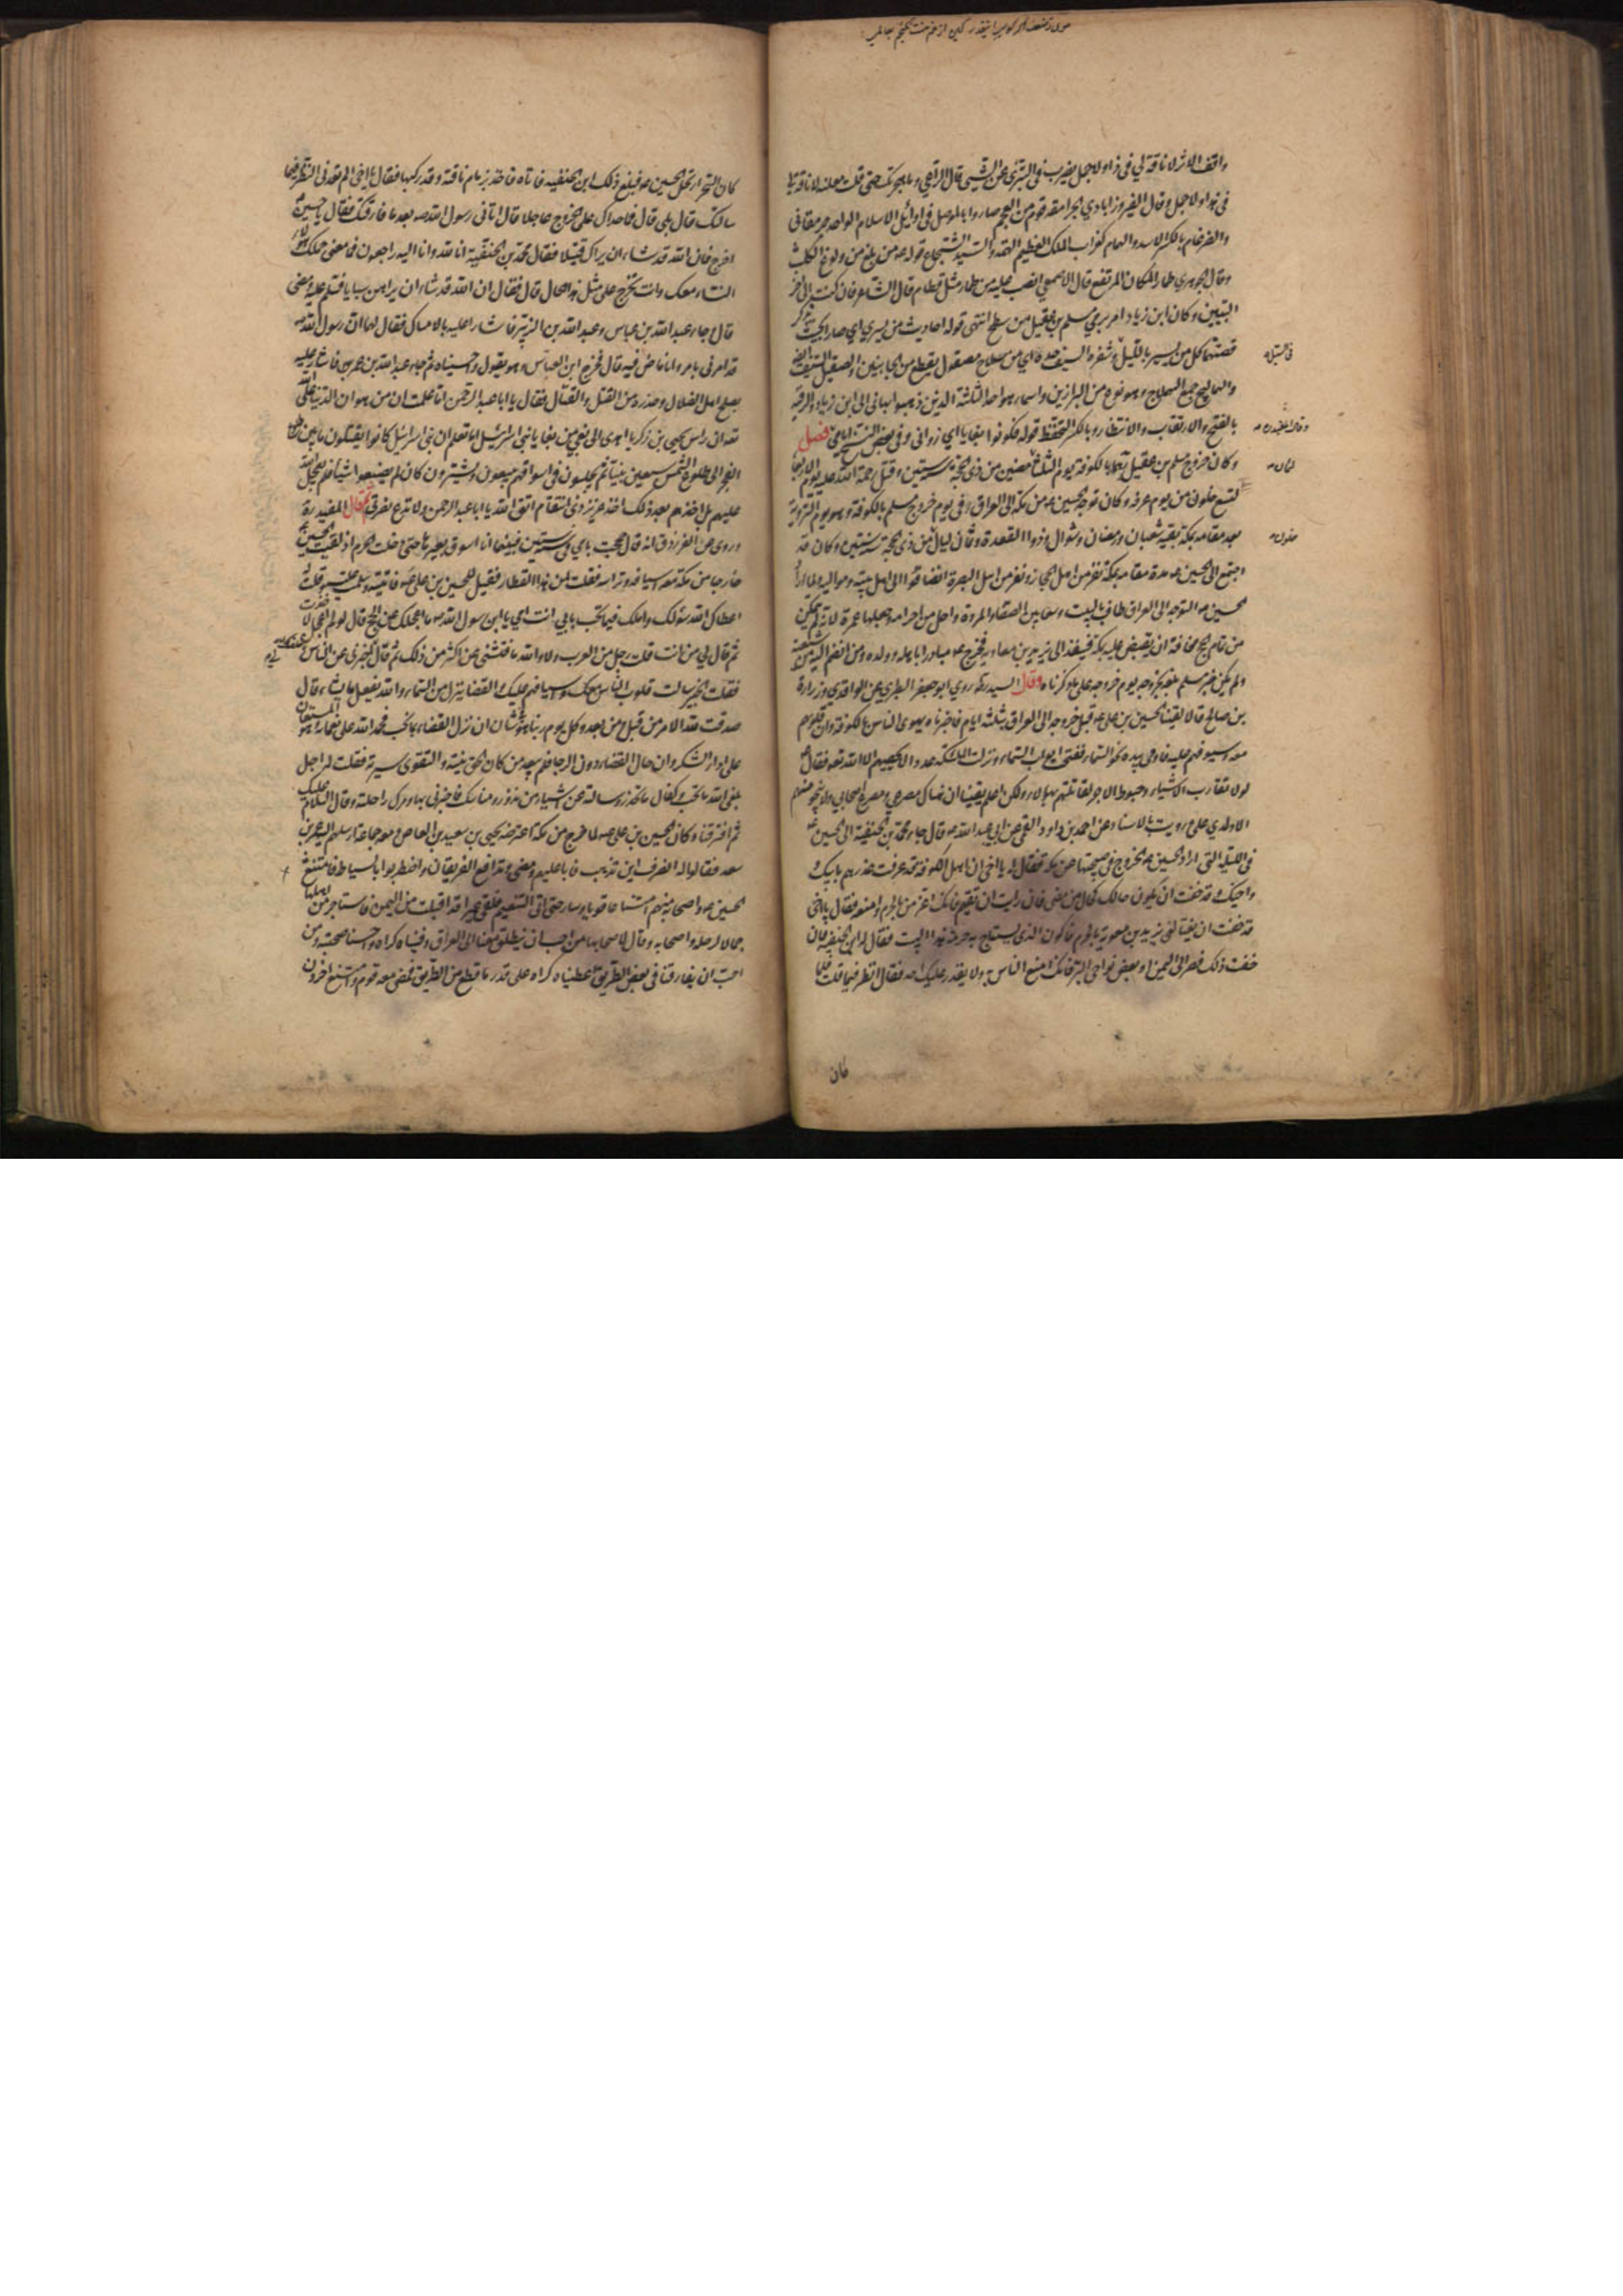 واقف الاثر لا ناقة لي في ذا ولا جمل يضرب في التبري عن الشيء قال الراعي وما هجرتك حتى قلت معلنة لا ناقة لي
في هذا ولا جمل وقال الفيروزابادي الجرامقة قوم من العجم صاروا بالموصل في اوائل الاسلام الواحد جرمقاني
والضرغام بالكسر الاسد والهمام كغراب الملك العظيم الهمة والسيد الشجاع قوله من ولوغ الكلب
وقال الجوهري طمار المكان المرتفع قال الاصمعي انصب عليه من طمار مثل قطام قال الشاعر فان كنت
البيتين وكان ابن زياد امر برمي مسلم بن عقيل من سطح انتهى قوله احاديث من يسري اي صارا بحيث يذكر
قصتهما كل من يسير بالليل وشفرة السيف حده اي من سلاح مصقول يقطع من الجانبين والصقيل السيف ايضا
والهماليج جمع الهملاج وهو نوع من البراذين واسماء هو احد الثلثة الذين ذهبوا بهاني الى ابن زياد والرقبة
بالفتح والارتقاب والانتظار وبالكسر التحفظ قوله فكونوا بغايا اي زواني وفي بعض النسخ ايامى فصل
وكان خروج مسلم بن عقيل بالكوفة يوم الثلثا لثمان مضين من ذي الحجة سنة ستين وقتل رحمة الله عليه يوم الاربعا
لتسع خلون منه يوم عرفة وكان توجه الحسين ع من مكة الى العراق في يوم خروج مسلم بالكوفة وهو يوم التروية
بعد مقامه بمكة بقية شعبان ورمضان وشوال وذوا القعدة وثمان ليال من ذي الحجة سنة ستين وكان قد
اجتمع الى الحسين ع مدة مقامه بمكة نفر من اهل الحجاز ونفر من اهل البصرة انضافوا الى اهل بيته ومواليه ولما اراد
الحسين ع التوجه الى العراق طاف بالبيت وسعى بين الصفا والمروة واحل من احرامه وجعلها عمرة لانه لم يتمكن
من تمام الحج مخافة ان يقبض عليه بمكة فينفذ الى يزيد بن معاوية فخرج ع مبادرا باهله وولده ومن انضم اليه من شيعته
ولم يكن خبر مسلم بلغه بخروجه يوم خروجه على ما ذكرناه وقال السيد ره روى ابو جعفر الطبري عن الواقدي وزرارة
بن صالح قالا لقينا الحسين بن علي ع قبل خروجه الى العراق بثلثة ايام فاخبرناه بهوى الناس بالكوفة وان قلوبهم
معه وسيوفهم عليه فاومى بيده نحو السماء ففتحت ابواب السماء ونزلت الملئكة عددا لا يحصيهم الا الله تع فقال ع
لولا تقارب الاشياء وحبوط الاجر لقاتلتهم بهولاء ولكن اعلم يقينا ان هناك مصرعي ومصرع اصحابي ولا ينجو منهم
الا ولدي علي ورويت بالاسناد عن احمد بن داود القمي عن ابي عبد الله ع قال جاء محمد بن الحنفية الى الحسين ع
في الليلة التي اراد الحسين ع الخروج في صبيحتها عن مكة فقال له يا اخي ان اهل الكوفة قد عرفت غدرهم بابيك
واخيك وقد خفت ان يكون حالك كحال من مضى فان رايت ان تقيم فانك اعز من بالحرم وامنعه فقال يا اخي
قد خفت ان يغتالني يزيد بن معوية بالحرم فاكون الذي يستباح به حرمة هذا البيت فقال له ابن الحنفية فان
خفت ذلك فصر الى اليمن او بعض نواحي البر فانك امنع الناس به ولا يقدر عليك احد فقال انظر فيما قلت فلما
كان
كان السحر ارتحل الحسين ع فبلغ ذلك ابن الحنفية فاتاه فاخذ بزمام ناقته وقد ركبها فقال يا اخي الم تعدني النظر فيما
سالتك قال بلى قال فما حداك على الخروج عاجلا قال اتاني رسول الله ص بعد ما فارقتك فقال يا حسين
اخرج فان الله قد شاء ان يراك قتيلا فقال محمد بن الحنفية انا لله وانا اليه راجعون فما معنى حملك هؤلاء
النساء معك وانت تخرج على مثل هذا الحال قال فقال ان الله قد شاء ان يراهن سبايا فسلم عليه ومضى
قال وجاء عبد الله بن عباس وعبد الله بن الزبير فاشارا عليه بالامساك فقال لهما ان رسول الله ص
قد امرني بامر وانا ماض فيه قال فخرج ابن العباس وهو يقول واحسيناه ثم جاء عبد الله بن عمر فاشار عليه
بصلح اهل الضلال وحذره من القتل والقتال فقال يا ابا عبد الرحمن اما علمت ان من هوان الدنيا على الله
تع ان راس يحيى بن زكريا اهدي الى بغي من بغايا بني اسرائيل اما تعلم ان بني اسرائيل كانوا يقتلون ما بين طلوع
الفجر الى طلوع الشمس سبعين نبيا ثم يجلسون في اسواقهم يبيعون ويشترون كان لم يصنعوا شيا فلم يعجل الله
عليهم بل اخذهم بعد ذلك اخذ عزيز ذي انتقام اتق الله يا ابا عبد الرحمن ولا تدع نصرتي ثم قال المفيد ره
وروي عن الفرزدق انه قال حججت بامي في سنة ستين فبينما انا اسوق بعيرها حتى دخلت الحرم اذ لقيت الحسين ع
خارجا من مكة معه اسيافه وتراسه فقلت لمن هذا القطار فقيل للحسين بن علي ع فاتيته وسلمت عليه وقلت له
اعطاك الله سؤلك واملك فيما تحب بابي انت وامي يا ابن رسول الله ص ما اعجلك عن الحج قال لو لم اعجل لاخذت
ثم قال لي من انت قلت رجل من العرب ولا والله ما فتشني عن اكثر من ذلك ثم قال اخبرني عن الناس خلفك
فقلت الخبير سالت قلوب الناس معك واسيافهم عليك والقضاء ينزل من السماء والله يفعل ما يشاء قال
صدقت لله الامر من قبل ومن بعد وكل يوم ربنا هو في شان ان نزل القضاء بما نحب فنحمد الله على نعمائه وهو المستعان
على اداء الشكر وان حال القضاء دون الرجاء فلم يبعد من كان الحق نيته والتقوى سيرته فقلت له اجل
بلغك الله ما تحب وكفاك ما تحذر وسالته عن اشياء من نذور ومناسك فاخبرني بها وحرك راحلته وقال السلام عليك
ثم افترقنا وكان الحسين بن علي ع لما خرج من مكة اعترضه يحيى بن سعيد بن العاص ومعه جماعة ارسلهم اليه عمرو بن
سعيد فقالوا له انصرف اين تذهب فابى عليهم ومضى وتدافع الفريقان واضطربوا بالسياط فامتنع
الحسين ع واصحابه منهم امتناعا قويا وسار حتى اتى التنعيم فلقي عيرا قد اقبلت من اليمن فاستاجر من اهلها
جمالا لرحله واصحابه وقال لاصحابها من احب ان ينطلق معنا الى العراق وفيناه كراه واحسنا صحبته ومن
احب ان يفارقنا في بعض الطريق اعطيناه كراه على قدر ما قطع من الطريق فمضى معه قوم وامتنع اخرون